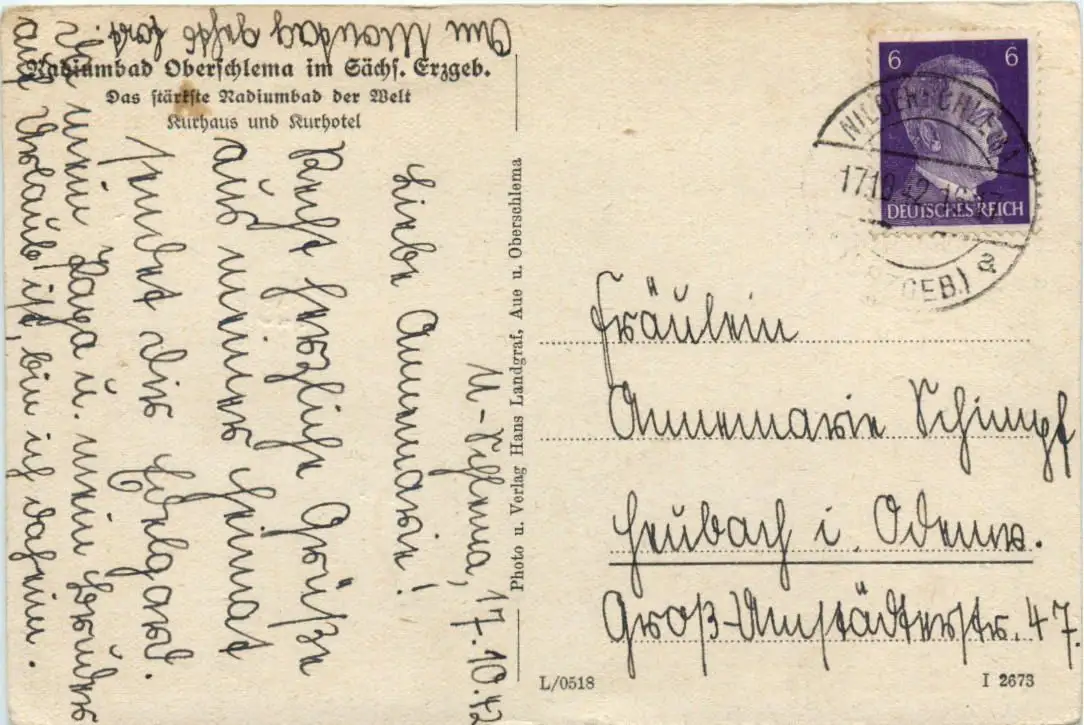 Radiumbad Oberschlema im Sächs. Erzgeb.
Das stärkste Radiumbad der Welt
Kurhaus und Kurhotel
N-Schlema, 17.10.42
Liebe Annemarie!
Recht herzliche Grüße
aus meiner Heimat
sendet Dir
Da mein Papa u. mein Bruder
auf Urlaub ist, bin ich daheim.
Am Montag gehts fort.
Photo u. Verlag Hans Landgraf, Aue u. Oberschlema
6 6
DEUTSCHES REICH
NIEDERSCHLEMA
17.10.42
GEB.) a
Fräulein
Annemarie Schimpf
Heubach i. Odenw.
Groß-Umstädterstr. 47.
L/0518
I 2673